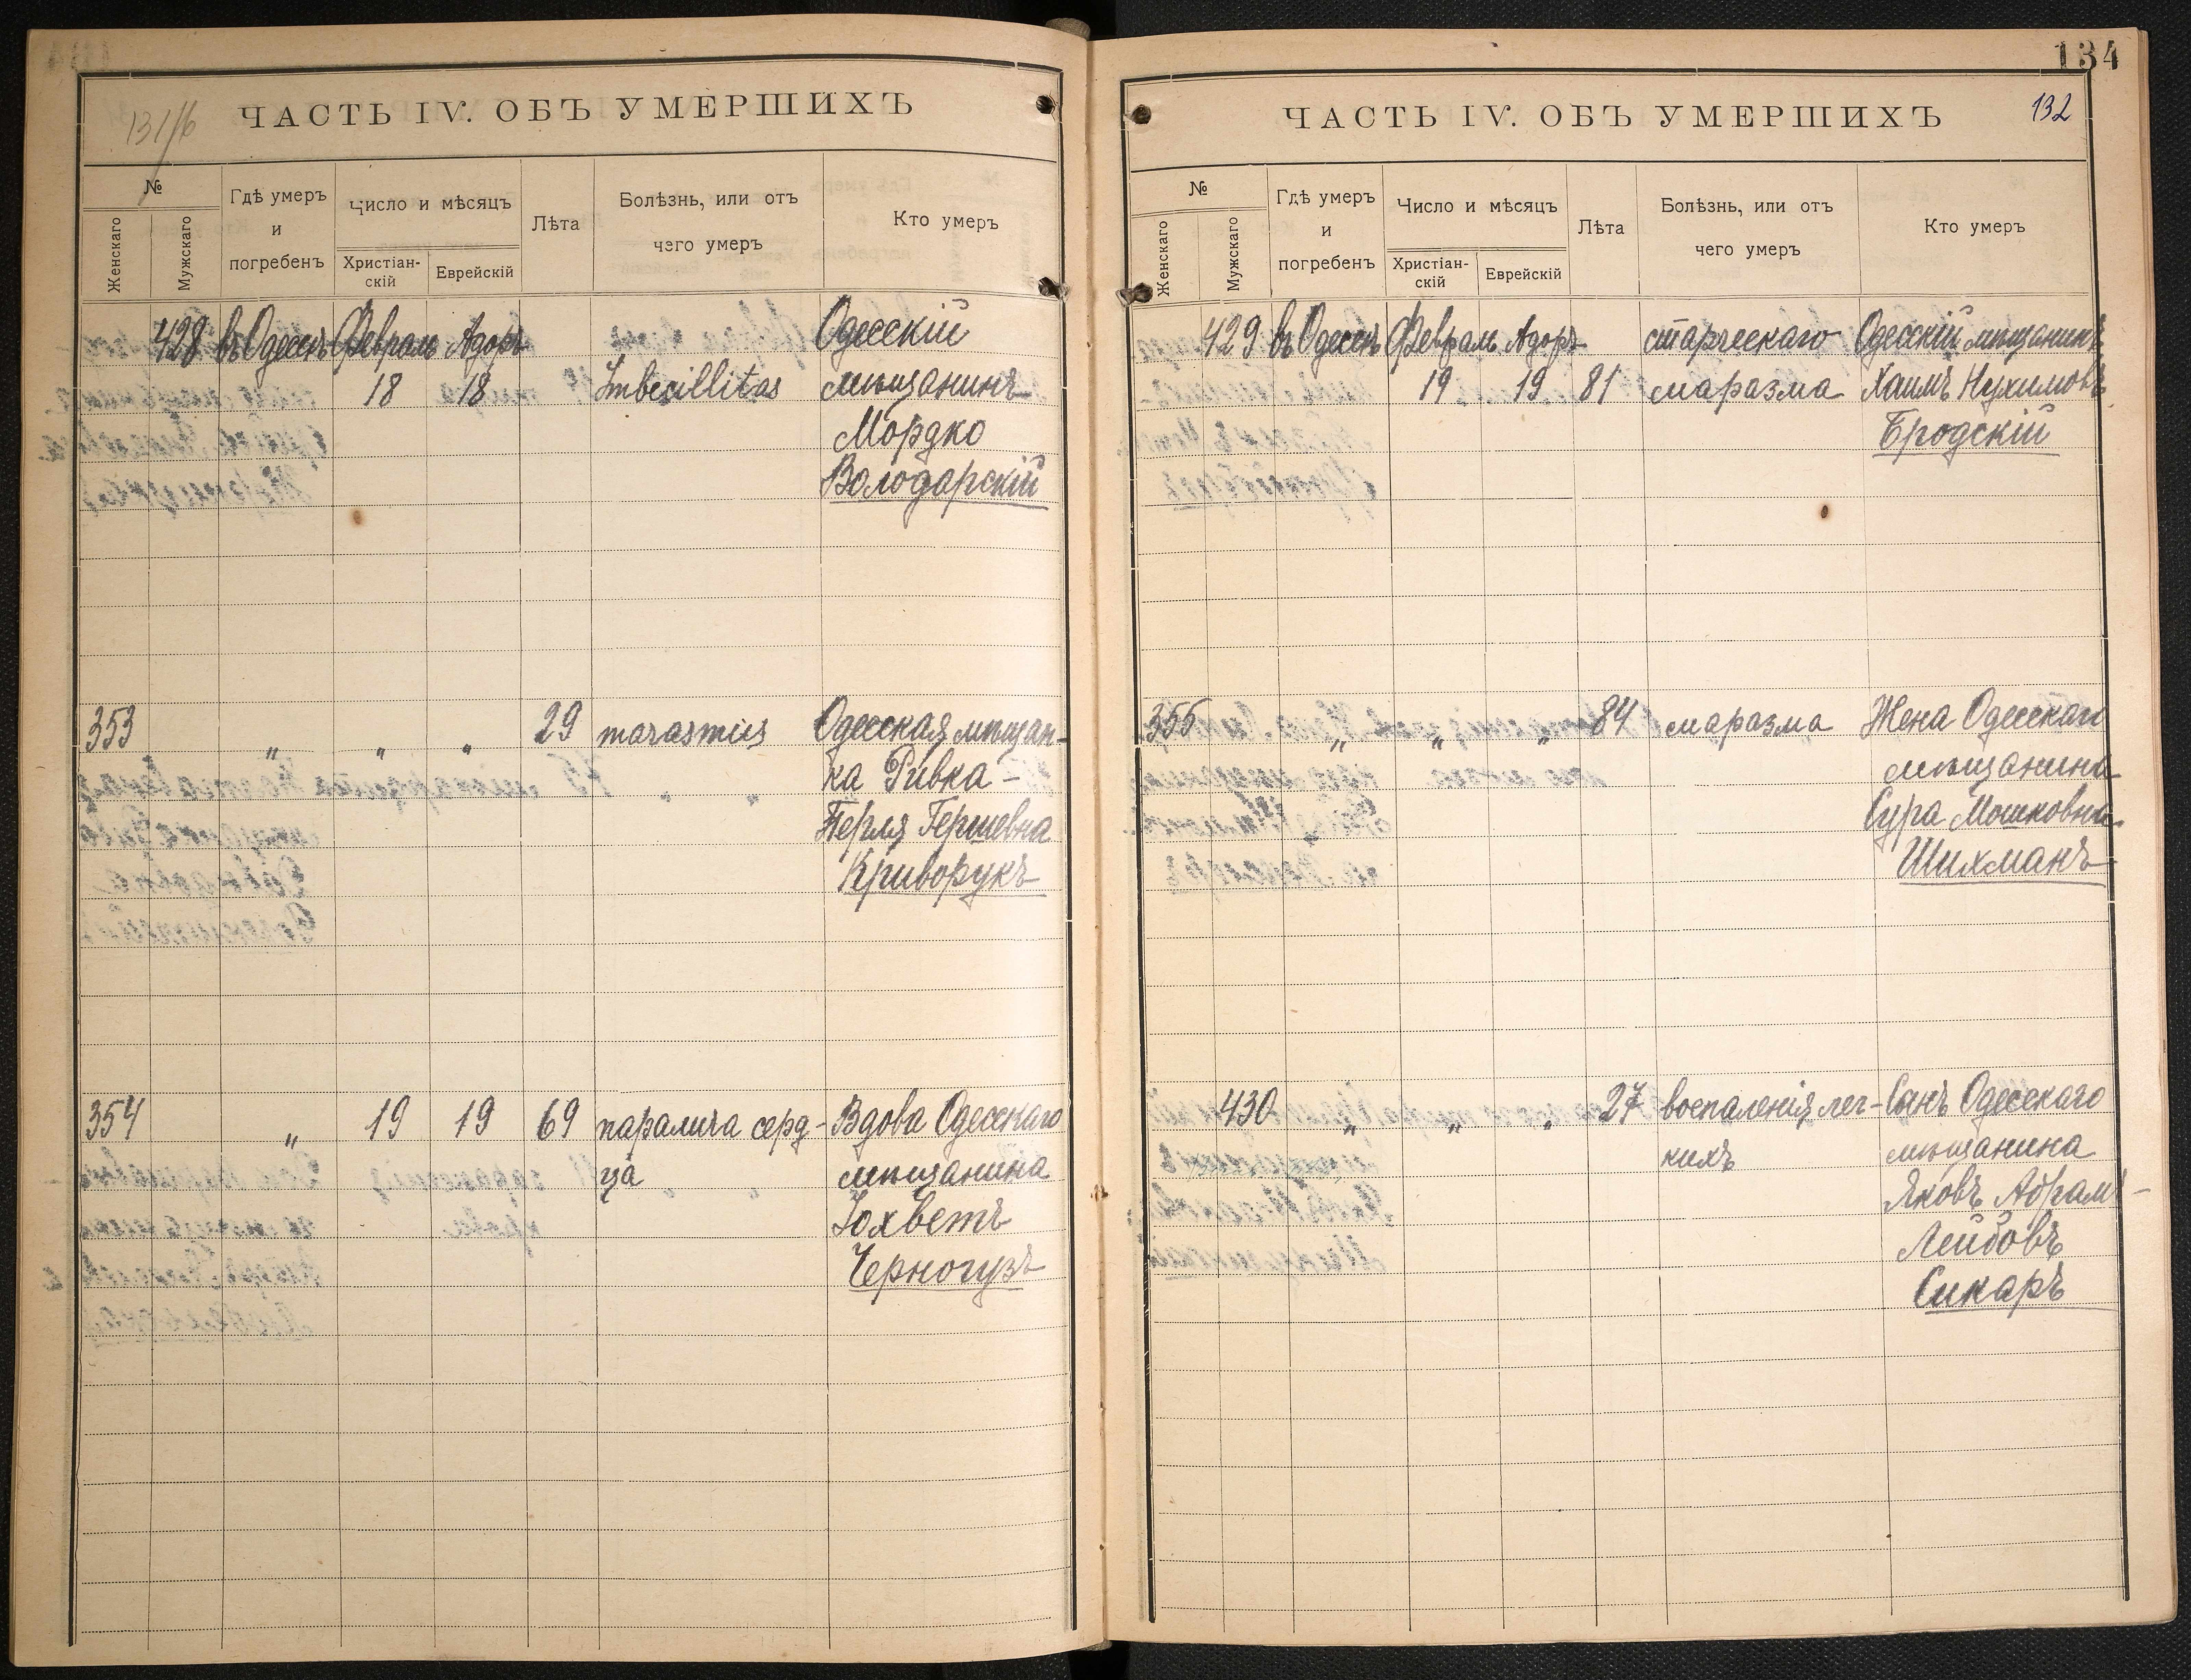 131/б
ЧАСТЬ IV. ОБЪ УМЕРШИХЪ
№
Женскаго
Мужскаго
Гдѣ умеръ
и
погребенъ
Число и мѣсяцъ
Христіан-
скій
Еврейскій
Лѣта
Болѣзнь, или отъ
чего умеръ
Кто умеръ
428 въ Одессѣ Февраль Адоръ Одесскій
18 18 Imbecillitas мѣщанинъ
Мордко
Володарскій
353 " " " 29 marasmus Одесская мѣщан-
ка Ривка-
Перля Гершевна
Криворукъ
354 " 19 19 69 паралича серд- Вдова Одесскаго
ца мѣщанина
Іохветъ
Черногузъ
134
ЧАСТЬ IV. ОБЪ УМЕРШИХЪ 132
№
Женскаго
Мужскаго
Гдѣ умеръ
и
погребенъ
Число и мѣсяцъ
Христіан-
скій
Еврейскій
Лѣта
Болѣзнь, или отъ
чего умеръ
Кто умеръ
429 въ Одессѣ Февраль Адоръ старческаго Одесскій мѣщанинъ
19 19 81 маразма Хаимъ Нухимовъ
Бродскій
355 " " " 84 маразма Жена Одесскаго
мѣщанина
Сура Мошковна
Шихманъ
430 " " " 27 воспаленія лег- Сынъ Одесскаго
кихъ мѣщанина
Яковъ Абрамъ-
Лейбовъ
Сикаръ